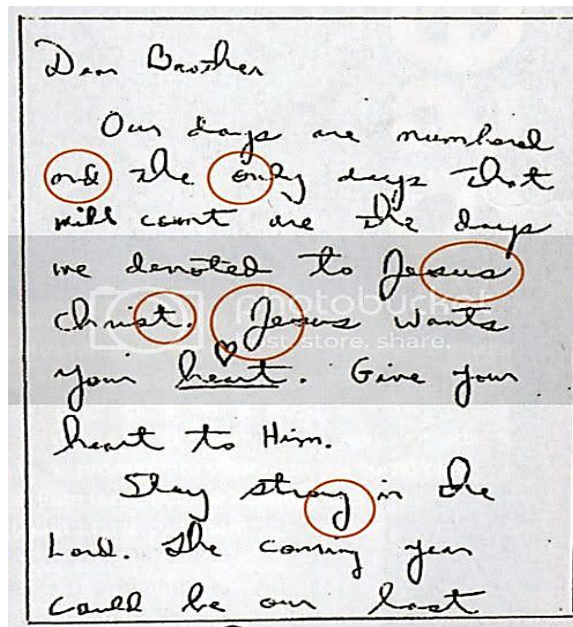 Dear Brother
Our days are numbered
and the only days that
will count are the days
we devoted to Jesus
Christ. Jesus wants
your heart. Give your
heart to Him.
Stay strong in the
Lord. The coming year
could be our last
photobucket
host. store. share.